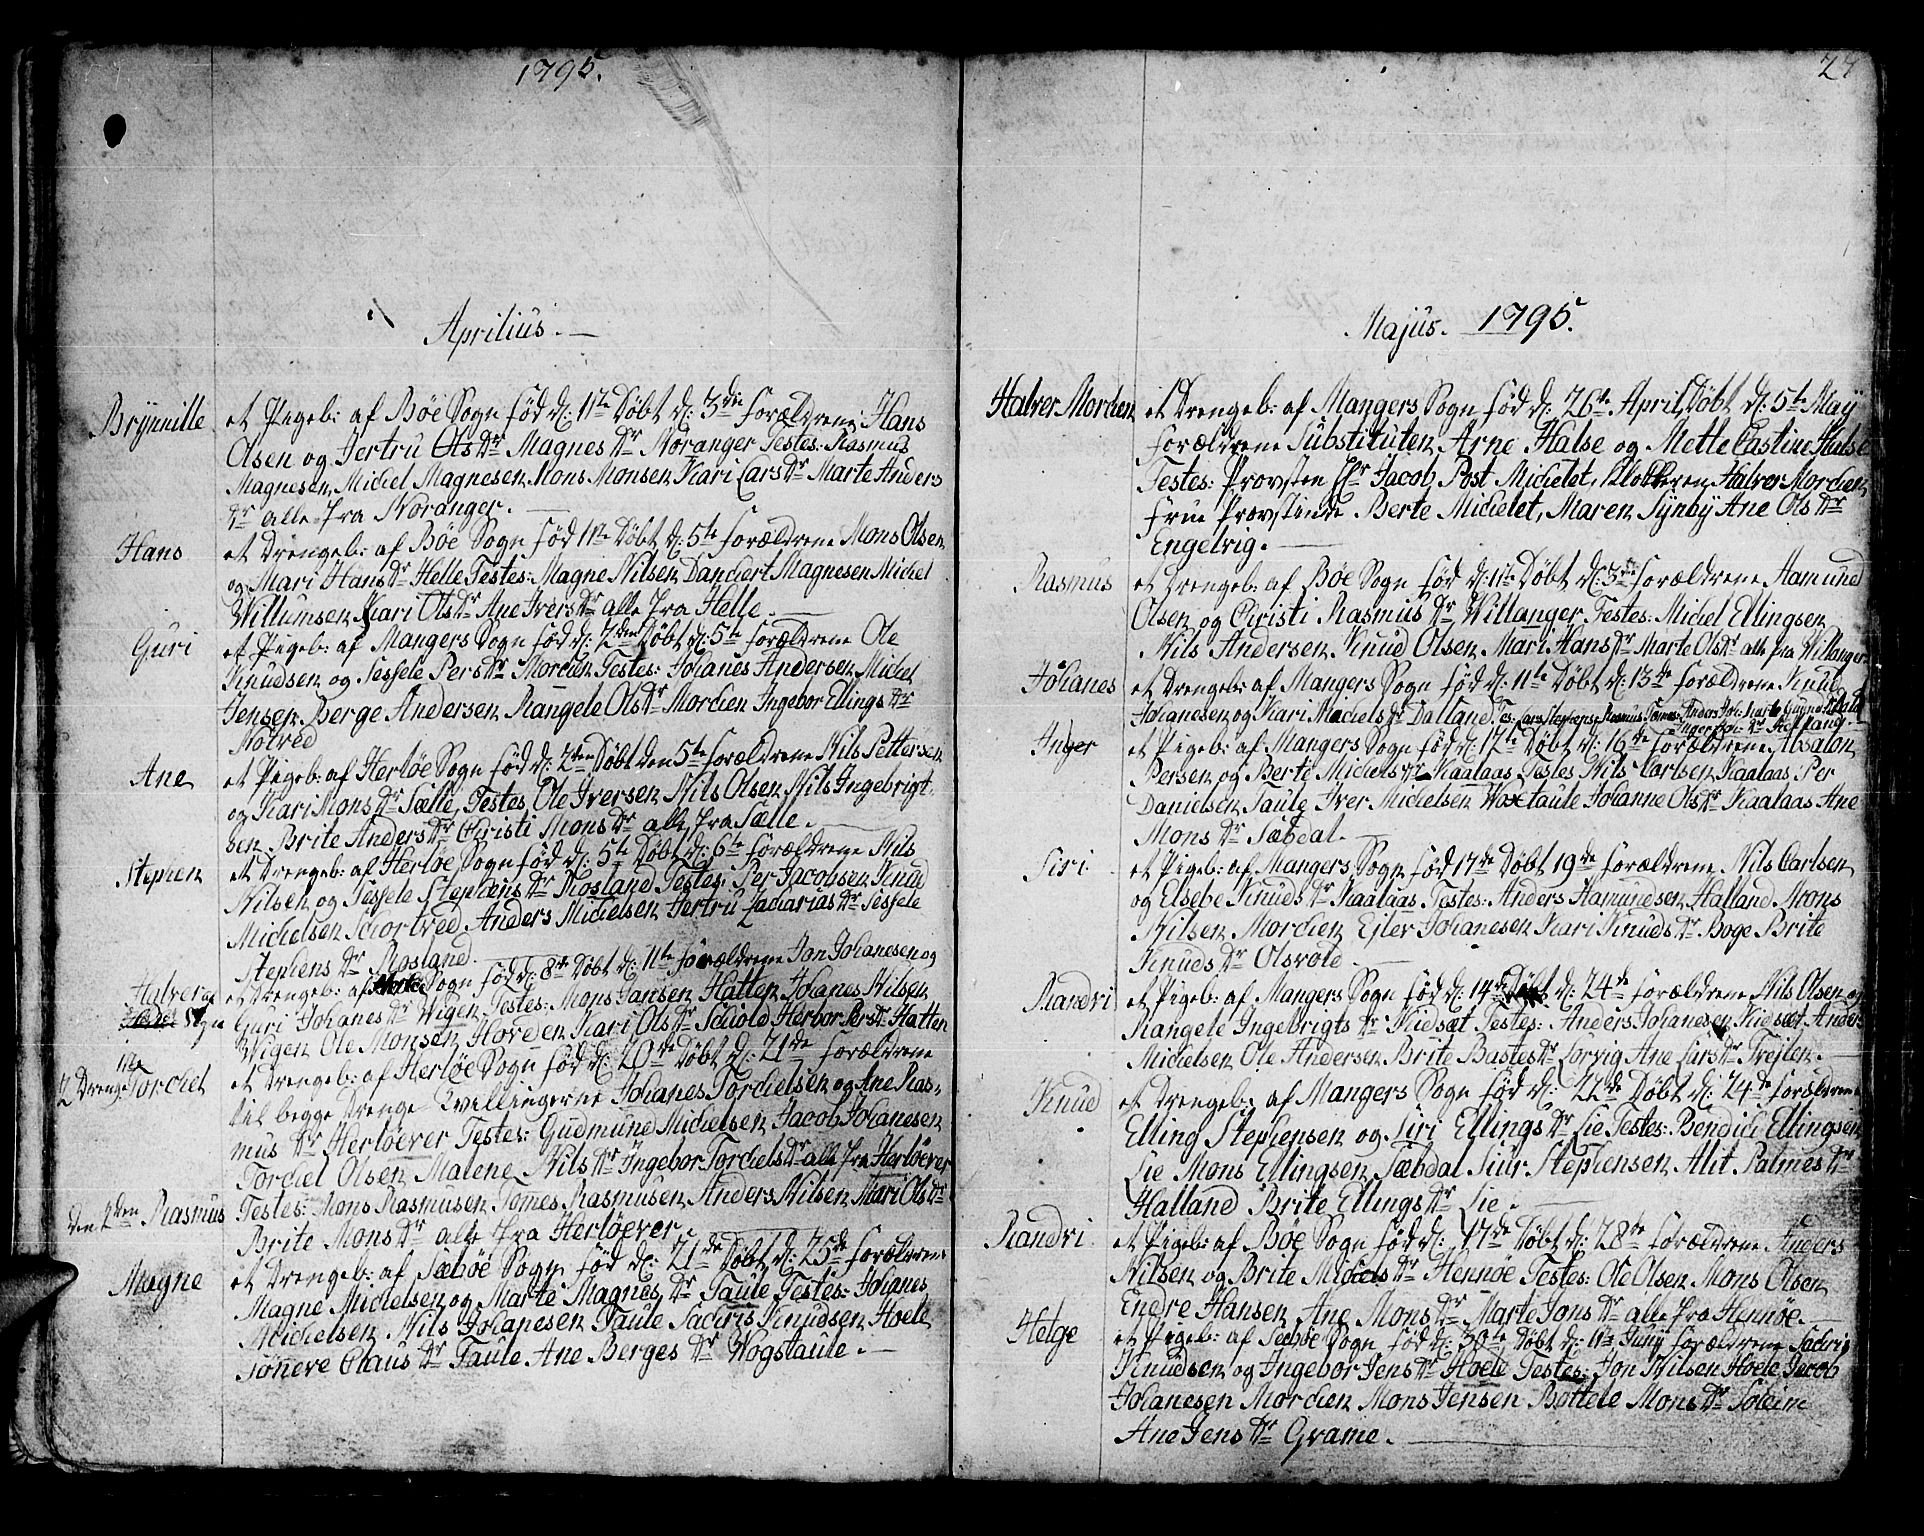 1795.
Aprilius.
Brynnille
et Pigeb: af Böe Sogn föd d: 11te Döbt d: 3die forældrene Hans
Olsen og Jertru Ols Dr Magnes Dr Noranger Testes: Rasmus
Magnesen Michel Magnesen Mons Monsen Kari Lars Dr Marte Anders
Dr alle fra Noranger.
Hans
et Drengeb: af Böe Sogn föd 11te Döbt d: 5te forældrene Mons Olsen
og Mari Hans Dr Helle Testes: Magne Nilsen Danchert Magnesen Michel
Willumsen Kari Ols Dr Ane Ivers Dr alle fra Helle.
Guri
et Pigeb: af Mangers Sogn föd d: 2den Döbt d: 5te forældrene Ole
Knudsen og Sessele Pers Dr Mordien Testes: Johanes Andersen Michel
Jensen Berge Andersen Rangele Ols Dr Mordien Ingebor Ellings Dr
Notved
Ane
et Pigeb: af Herlöe Sogn föd d: 2den Döbt den 5te forældrene Nils Pettersen
og Kari Mons Dr Sælle Testes Ole Iversen Nils Olsen Nils Ingebrigt
sen Brite Anders Dr Christi Mons Dr alle fra Sælle.
Stephen
et Drengeb: af Herlöe Sogn föd d: 5te Döbt d: 6te forældrene Nils
Nilsen og Sessele Stephens Dr Rosland Testes: Per Jacobsen Knud
Michelsen Schortved Anders Michelsen Jertru Zacharias Dr Sessele
Stephens Dr Rosland.
Halver
et Drengeb: af Sogn föd d: 8de Döbt d: 11te forældrene Jon Johanesen og
Sogn
Guri Johanes Dr Wigen Testes: Mons Jansen Hatten Johanes Nilsen
Wigen Ole Monsen Horden Kari Ols Dr Schold Herbor Pers Dr Hatten
1te
2 Drenge Torchel
et Drengeb: af Herlöe Sogn föd d: 20de Döbt d: 21de forældrene
til begge Drenge Tvillingerne Johanes Torchelsen og Ane Ras-
mus Dr Herlöever Testes: Gudmund Michelsen Jacob Johanesen
Torchel Olsen Malene Nils Dr Ingebor Torchels Dr alle fra Herlöever
den 2den Rasmus
Testes: Mons Rasmusen Tomes Rasmusen Anders Nilsen Mari Ols Dr
Brite Mons Dr alle fra Herlöever.
Magne
et Drengeb: af Sæböe Sogn föd d: 21de Döbt d: 25de forældrene
Magne Michelsen og Marte Magnes Dr Taule Testes: Johanes
Michelsen Nils Johanesen Taule Sachris Knudsen Hoele
Sönneve Claus Dr Taule Ane Berges Dr Wogstaule.
27
Majus. 1795.
Halver Mordien
et Drengeb: af Mangers Sogn föd d: 26te April, Döbt d: 5te May
forældrene Substituten Arne Halse og Mette Castine Halse
Testes: Provsten Hr Jacob Post Michelet, Klokkeren Halver Mordien
Frue Provstinde Berte Michelet, Maren Synby Ane Ols Dr
Engelvig.
Rasmus
et Drengeb: af Böe Sogn föd d: 11te Döbt d: 3die forældrene Aamund
Olsen og Christi Rasmus Dr Willanger Testes: Michel Ellingsen
Nils Andersen Knud Olsen Mari Hans Dr Marte Ols Dr alle fra Willanger
Johanes
et Drengeb: af Mangers Sogn föd d: 11te Döbt d: 13de forældrene Knud
Johanesen og Kari Michels Dr Dalland Tes: Lars Stephens: Rasmus Tomes:
Anger
et Pigeb: af Mangers Sogn föd d: 12te Döbt d: 16de forældrene Absalon
Persen og Berte Michels Dr Kaalaas Testes Nils Carlsen Kaalaas Per
Danielsen Taule Iver Michelsen Woxtaule Johanne Ols Dr Kaalaas Ane
Mons Dr Sæbdal.
Siri
et Pigeb: af Mangers Sogn föd 17de Döbt 19de forældrene Nils Carlsen
og Elsebe Knuds Dr Kaalaas Testes: Anders Aamundsen Halland Mons
Nilsen Mordien Ejler Johanesen Kari Knuds Dr Boge Brite
Knuds Dr Olsvold.
Randvi
et Pigeb: af Mangers Sogn föd d: 14de Döbt d: 24de forældrene Nils Olsen og
Rangele Ingebrigts Dr Kidsæt Testes: Anders Johanesen Kidsæt Anders
Michelsen Ole Andersen Brite Bastes Dr Lorvig Ane Lars Dr Trejlen.
Knud
et Drengeb: af Mangers Sogn föd d: 22de Döbt d: 24de forældrene
Elling Stephensen og Siri Ellings Dr Lie Testes: Bendici Ellingsen
Lie Mons Ellingsen Sæbdal Siur Stephensen Alit Palmes Dr
Halland Brite Ellings Dr Lie.
Randvi.
et Pigeb: af Böe Sogn föd d: 17de Döbt d: 28de forældrene Anders
Nilsen og Brite Michels Dr Hennöe Testes: Ole Olsen Mons Olsen
Endre Hansen Ane Mons Dr Marte Jons Dr alle fra Hennöe.
Helge
et Pigeb: af Seeböe Sogn föd d: 30te Döbt d: 11te Junij forældrene Sachris
Knudsen og Ingebor Jens Dr Hoele Testes: Jon Nilsen Hoele Jacob
Johanesen Mordien Mons Jensen Bottele Mons Dr Soleim
Ane Jens Dr Grame.